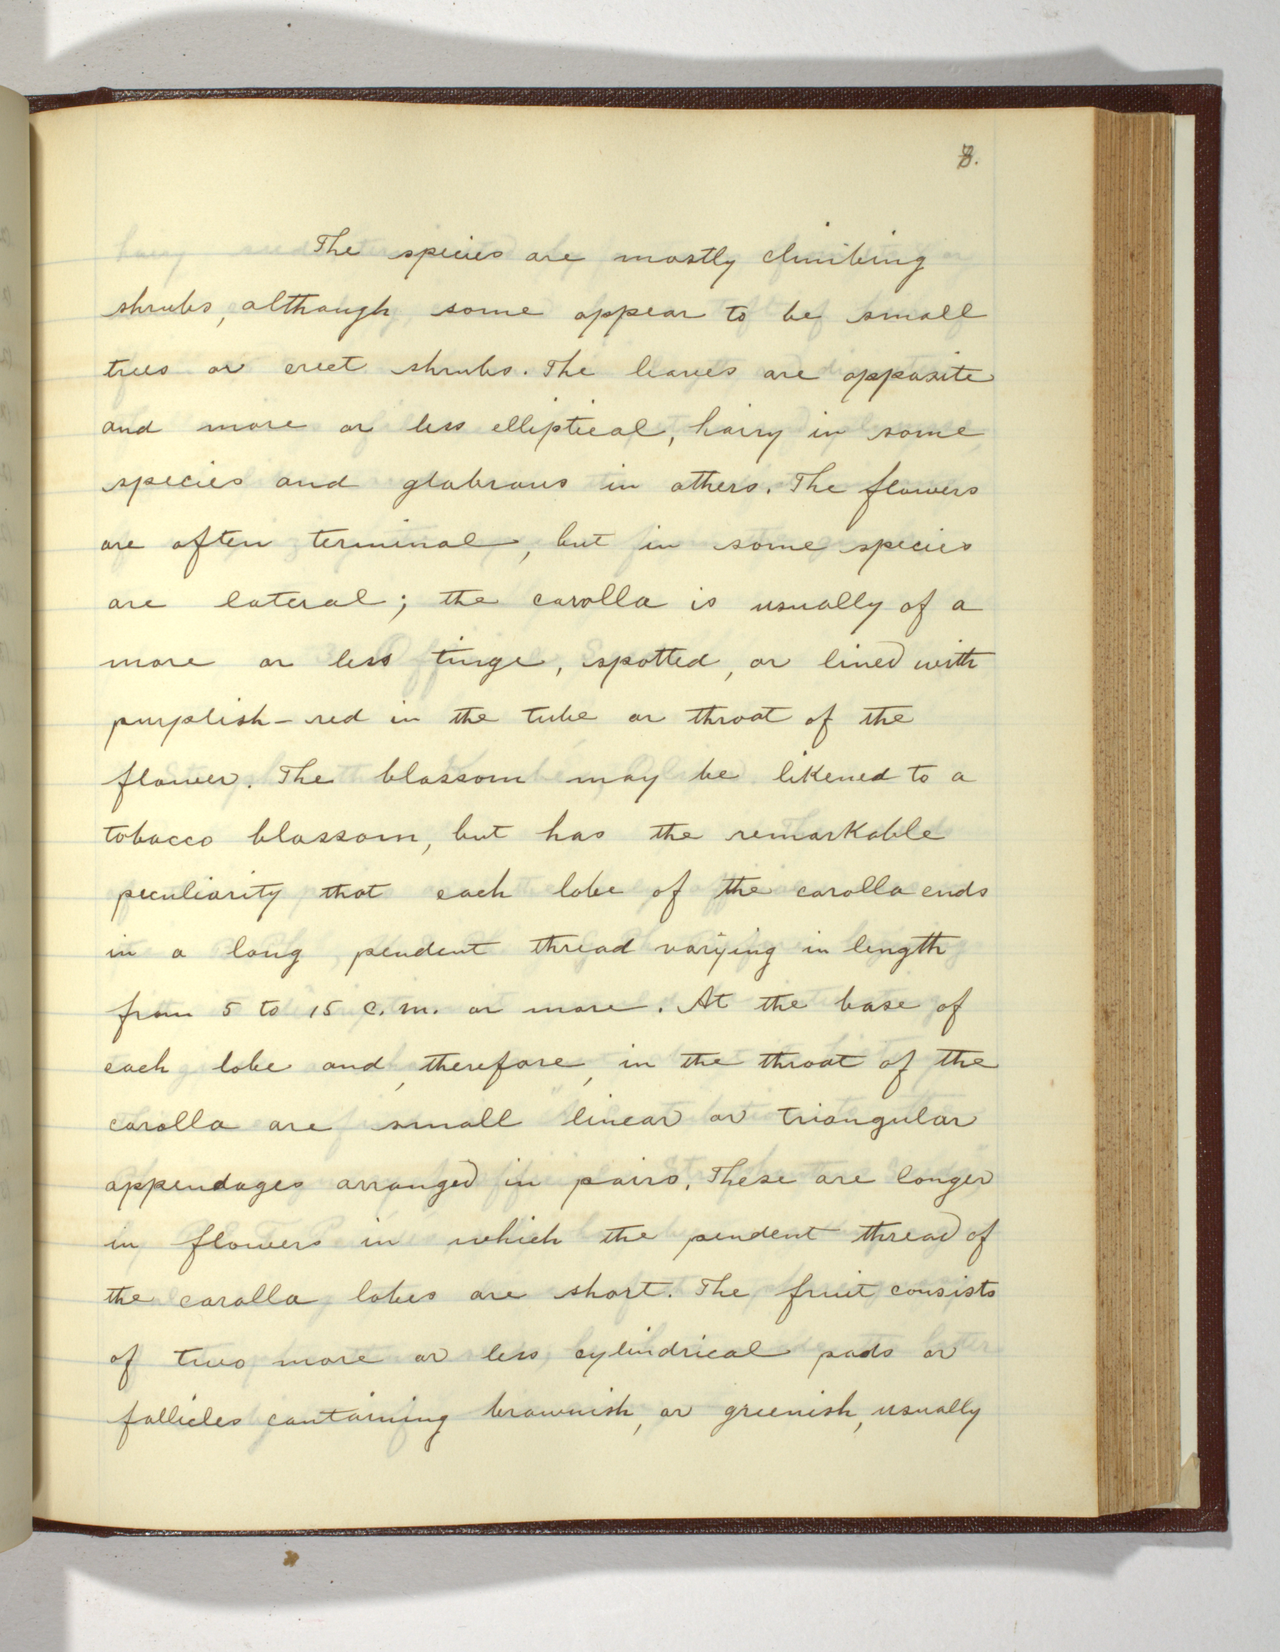 The species are mostly climbing
shrubs, although some appear to be small
trees or erect shrubs. The leaves are opposite
and more or less elliptical, hairy in some
species and glabrous in others. The flowers
are often terminal, but in some species
are lateral; the corolla is usually of a
more or less tinge, spotted, or lined with
purplish-red in the tube or throat of the
flower. The blossom may be likened to a
tobacco blossom, but has the remarkable
peculiarity that each lobe of the corolla ends
in a long pendent thread varying in length
from 5 to 15 c.m. or more. At the base of
each lobe and, therefore, in the throat of the
corolla are small linear or triangular
appendages arranged in pairs. These are longer
in flowers in which the pendent thread of
the corolla lobes are short. The fruit consists
of two more or less cylindrical pods or
follicles containing brownish, or greenish, usually